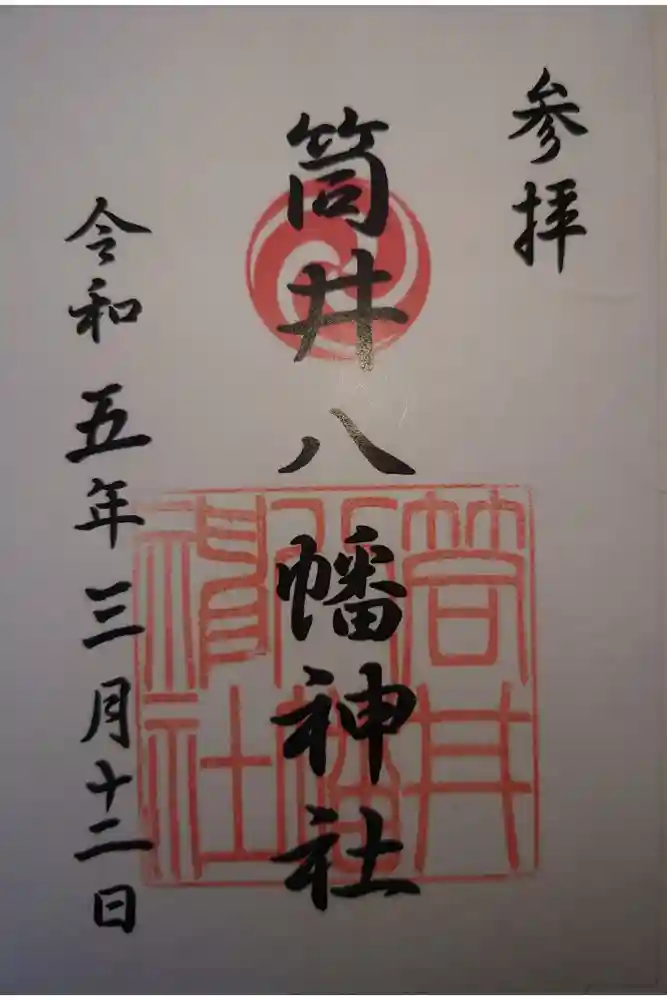 参拝
筒井八幡神社
筒井
八幡
神社
令和五年三月十二日